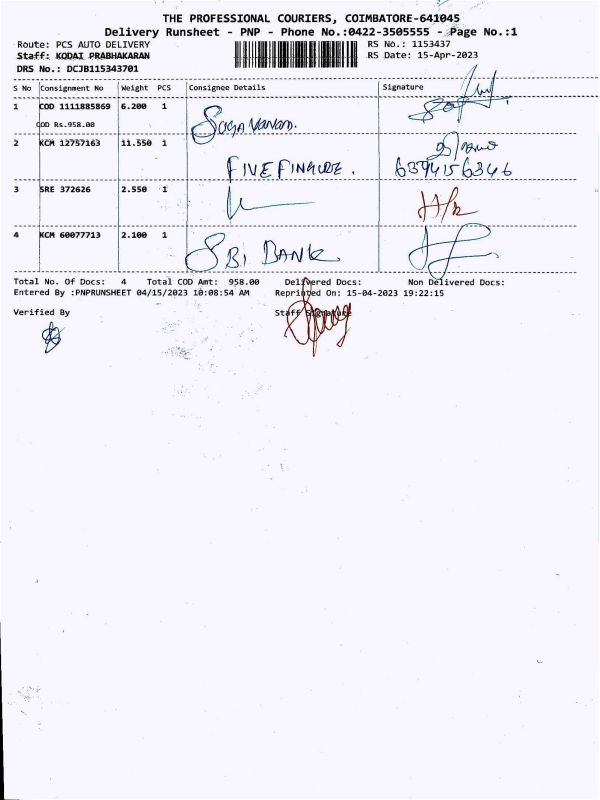 THE PROFESSIONAL COURIERS, COIMBATORE-641045
Delivery Runsheet - PNP - Phone No.:0422-3505555 - Page No.:1
Route: PCS AUTO DELIVERY
RS No.: 1153437
Staff: KODAI PRABHAKARAN
RS Date: 15-Apr-2023
DRS No.: DCJB115343701
S No Consignment No Weight PCS Consignee Details Signature
1 COD 1111885869 6.200 1
COD Rs.958.00
2 KCM 12757163 11.550 1
FIVE FINGURE. 6394156346
3 SRE 372626 2.550 1
4 KCM 60077713 2.100 1 SBI BANK
Total No. Of Docs: 4 Total COD Amt: 958.00 Delivered Docs: Non Delivered Docs:
Entered By :PNPRUNSHEET 04/15/2023 10:08:54 AM Reprinted On: 15-04-2023 19:22:15
Verified By Staff Signature